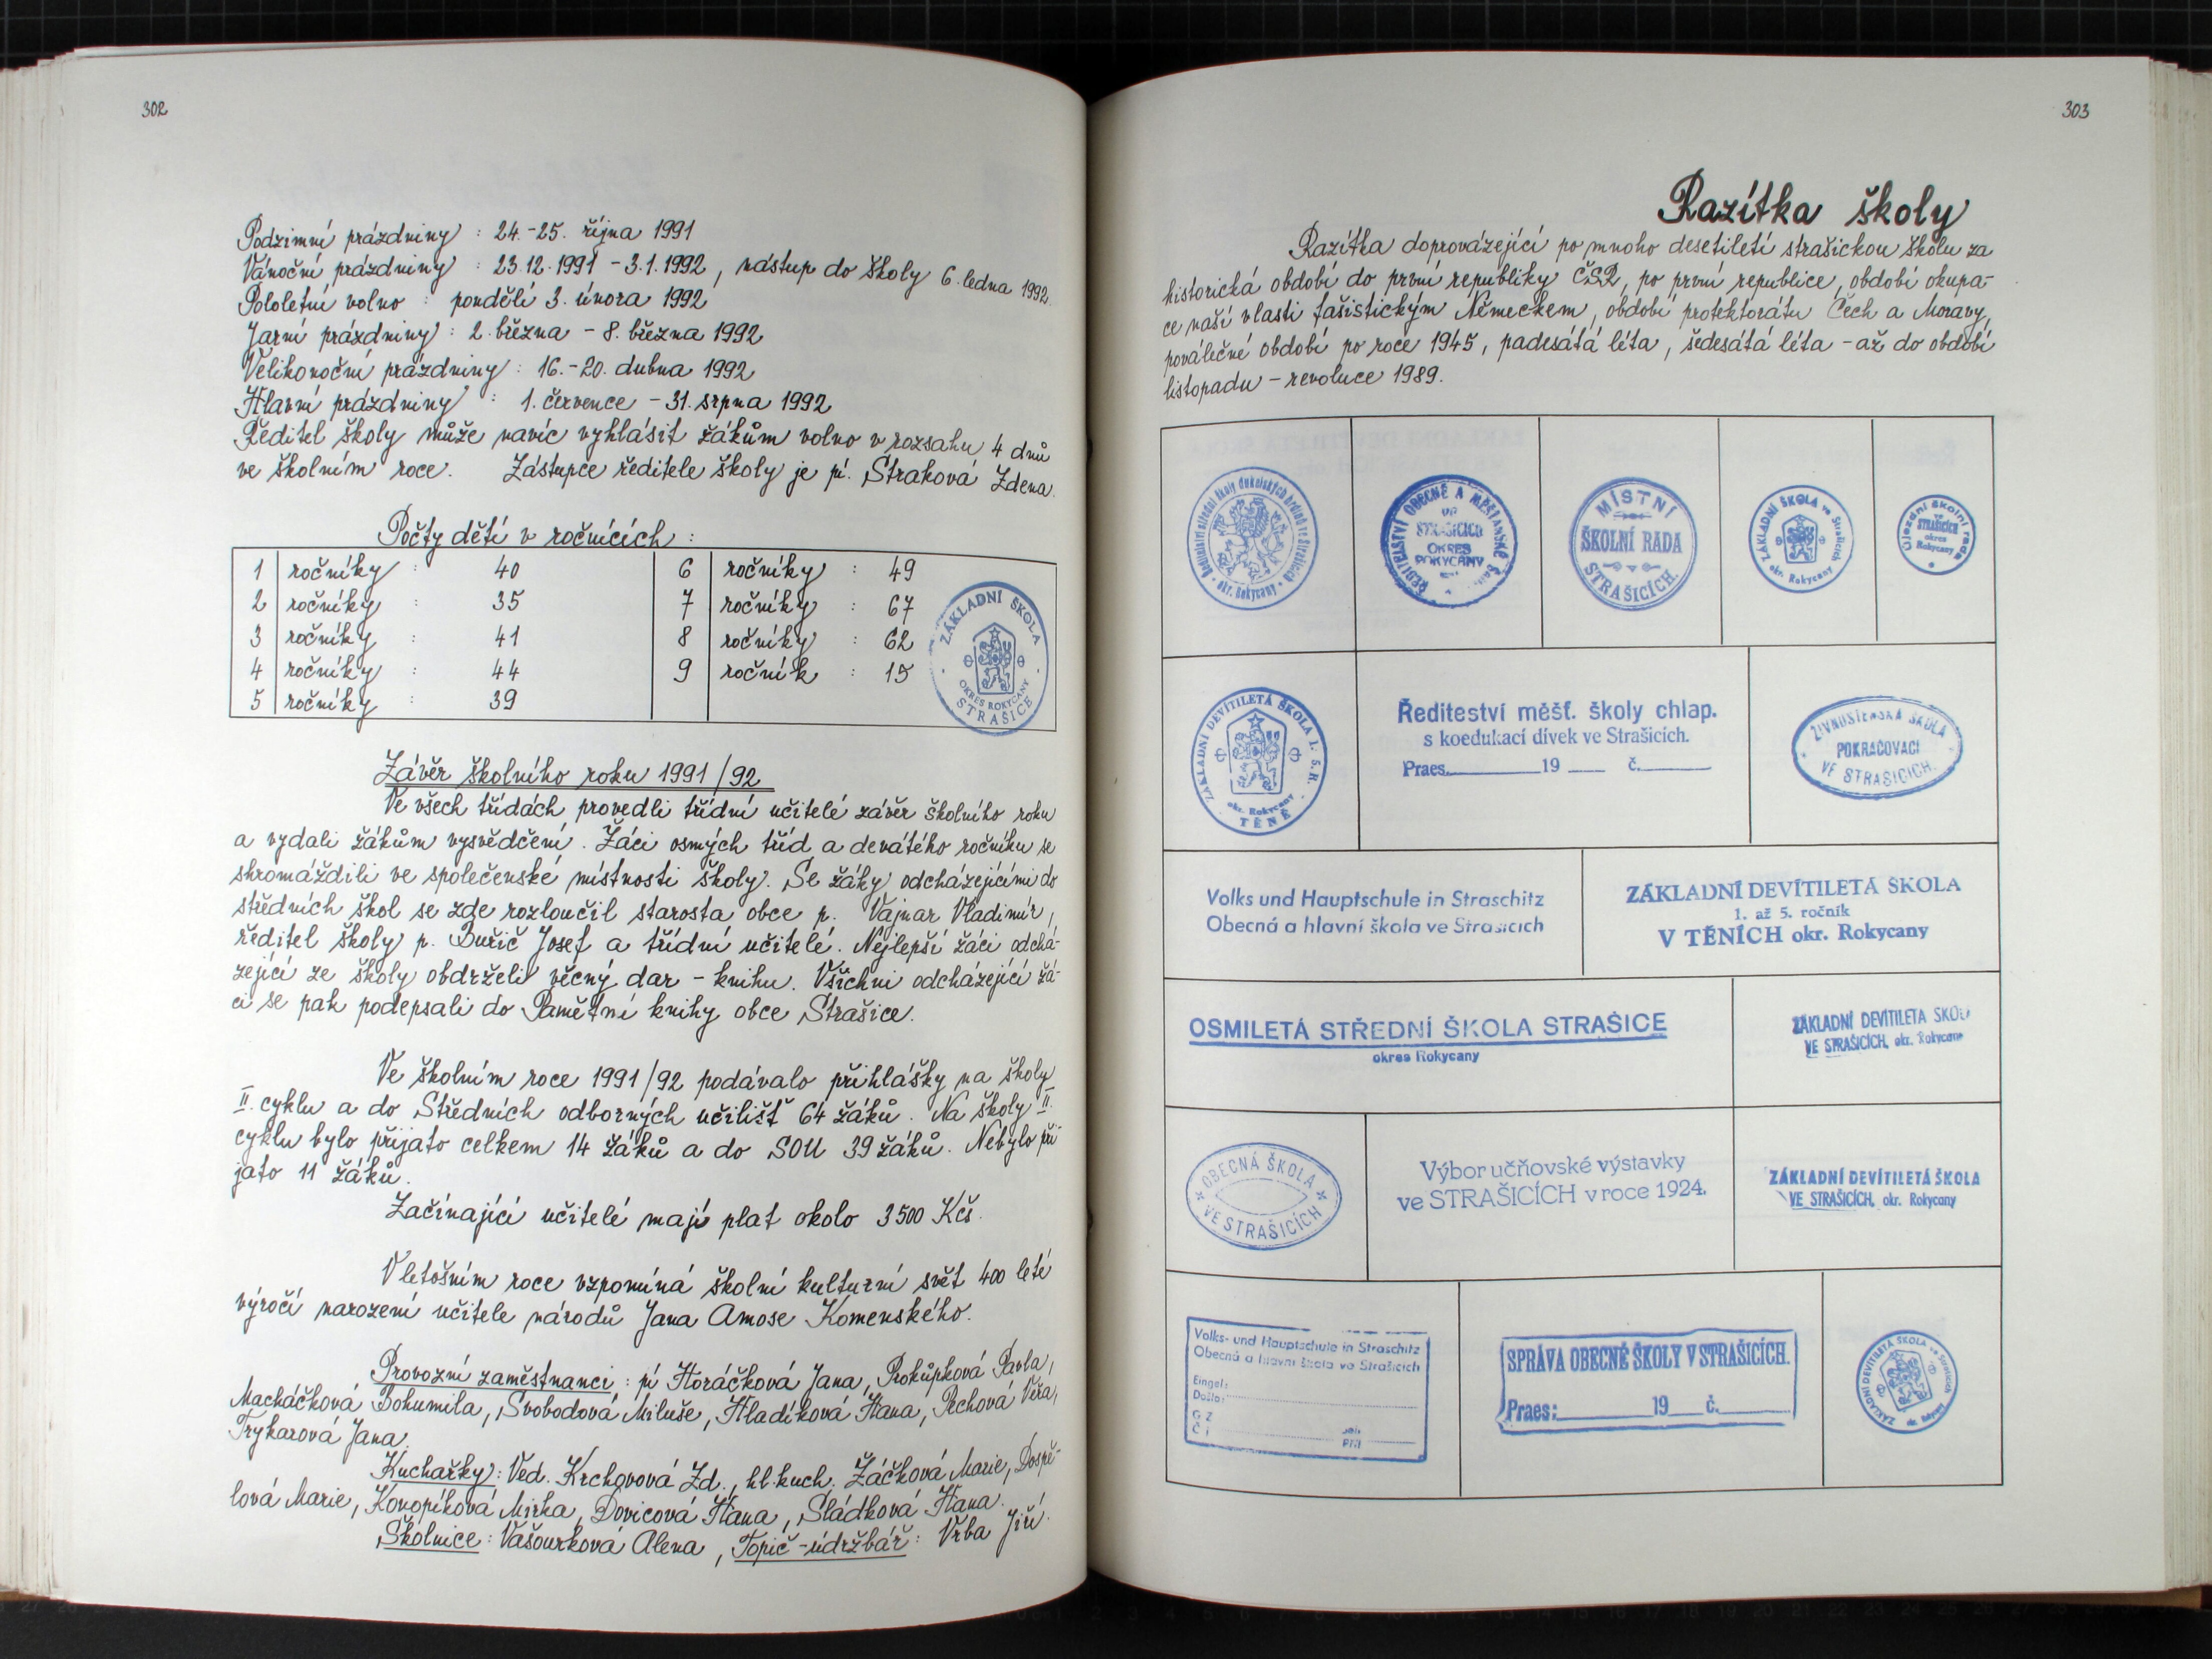 302
Podzimní prázdniny : 24.-25. října 1991
Vánoční prázdniny : 23.12.1991 - 3.1.1992, nástup do školy 6. ledna 1992.
Pololetní volno : pondělí 3. února 1992
Jarní prázdniny : 2. března - 8. března 1992
Velikonoční prázdniny : 16.-20. dubna 1992
Hlavní prázdniny : 1. července - 31. srpna 1992
Ředitel školy může navíc vyhlásit žákům volno v rozsahu 4 dnů
ve školním roce. Zástupce ředitele školy je pí. Straková Zdena.
Počty dětí v ročnících :
1 ročníky : 40 6 ročníky : 49
2 ročníky : 35 7 ročníky : 67
3 ročníky : 41 8 ročníky : 62
4 ročníky : 44 9 ročník : 15
5 ročníky : 39
ZÁKLADNÍ ŠKOLA
OKRES ROKYCANY
STRAŠICE
Závěr školního roku 1991/92
Ve všech třídách provedli třídní učitelé závěr školního roku
a vydali žákům vysvědčení. Žáci osmých tříd a devátého ročníku se
shromáždili ve společenské místnosti školy. Se žáky odcházejícími do
středních škol se zde rozloučil starosta obce p. Vajnar Vladimír,
ředitel školy p. Buřič Josef a třídní učitelé. Nejlepší žáci odchá-
zející ze školy obdrželi věcný dar - knihu. Všichni odcházející žá-
ci se pak podepsali do Pamětní knihy obce Strašice.
Ve školním roce 1991/92 podávalo přihlášky na školy
II. cyklu a do Středních odborných učilišť 64 žáků. Na školy II.
cyklu bylo přijato celkem 14 žáků a do SOU 39 žáků. Nebylo při-
jato 11 žáků.
Začínající učitelé mají plat okolo 3500 Kčs.
V letošním roce vzpomíná školní kulturní svět 400 leté
výročí narození učitele národů Jana Amose Komenského.
Provozní zaměstnanci : pí Horáčková Jana, Prokůpková Pavla,
Macháčková Bohumila, Svobodová Miluše, Hladíková Hana, Pechová Věra,
Trykarová Jana.
Kuchařky : Ved. Krchovová Zd., hl. kuch. Žáčková Marie, Dospě-
lová Marie, Konopíková Mirka, Dovicová Hana, Sládková Hana.
Školnice : Vašourková Alena, Topič-údržbář : Vrba Jiří.
303
Razítka školy
Razítka doprovázející po mnoho desetiletí strašickou školu za
historická období do první republiky ČSR, po první republice, období okupa-
ce naší vlasti fašistickým Německem, období protektorátu Čech a Moravy,
poválečné období po roce 1945, padesátá léta, šedesátá léta - až do období
listopadu - revoluce 1989.
střední školy dukelských hrdinů ve Strašicích
okr. Rokycany
ŘEDITELSTVÍ OBECNÉ A MĚŠŤANSKÉ
VE
STRAŠICÍCH
OKRES
ROKYCANY
MÍSTNÍ
ŠKOLNÍ RADA
STRAŠICÍCH.
ZÁKLADNÍ ŠKOLA ve Strašicích
okr. Rokycany
Újezdní školní rada
ve
STRAŠICÍCH
okres
Rokycany
ZÁKLADNÍ DEVÍTILETÁ ŠKOLA 1.-5. R.
okr. Rokycany
TĚNĚ
Řediteství měšť. školy chlap.
s koedukací dívek ve Strašicích.
Praes. 19 č.
ŽIVNOSTENSKÁ ŠKOLA
POKRAČOVACÍ
VE STRAŠICÍCH.
Volks und Hauptschule in Straschitz
Obecná a hlavní škola ve Strašicích
ZÁKLADNÍ DEVÍTILETÁ ŠKOLA
1. až 5. ročník
V TĚNÍCH okr. Rokycany
OSMILETÁ STŘEDNÍ ŠKOLA STRAŠICE
okres Rokycany
ZÁKLADNÍ DEVÍTILETÁ ŠKOLA
VE STRAŠICÍCH, okr. Rokycany
OBECNÁ ŠKOLA
VE STRAŠICÍCH
Výbor učňovské výstavky
ve STRAŠICÍCH v roce 1924.
ZÁKLADNÍ DEVÍTILETÁ ŠKOLA
VE STRAŠICÍCH, okr. Rokycany
Volks- und Hauptschule in Straschitz
Obecná a hlavní škola ve Strašicích
Eingel:
Došlo:
G Z
Č j
Příl
SPRÁVA OBECNÉ ŠKOLY V STRAŠICÍCH.
Praes: 19 č.
ZÁKLADNÍ DEVÍTILETÁ ŠKOLA ve Strašicích
okr. Rokycany